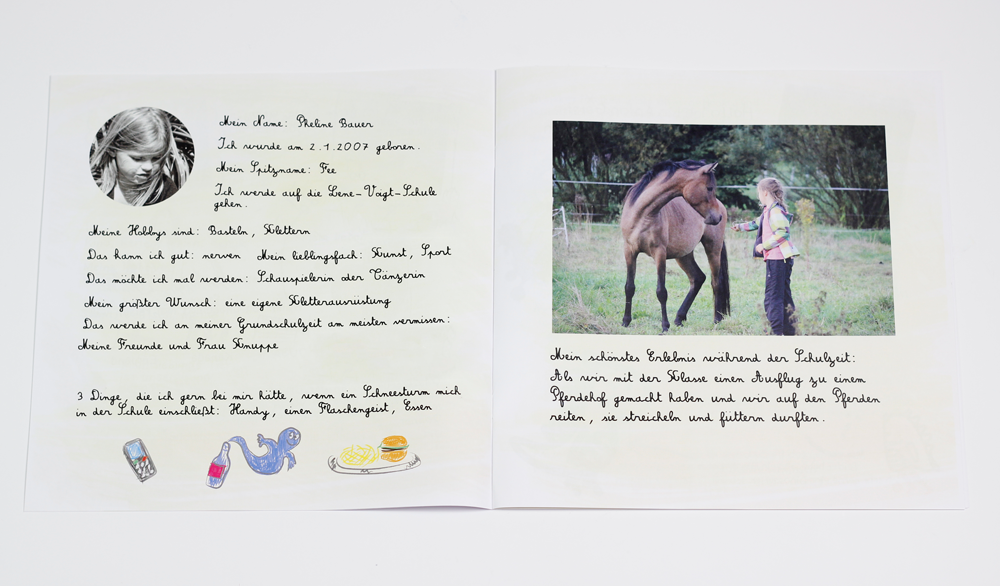 Mein Name: Pheline Bauer
Ich wurde am 2.1.2007 geboren.
Mein Spitzname: Fee
Ich werde auf die Lene-Voigt-Schule
gehen.
Meine Hobbys sind: Basteln, Klettern
Das kann ich gut: nerven Mein lieblingsfach: Kunst, Sport
Das möchte ich mal werden: Schauspielerin oder Tänzerin
Mein größter Wunsch: eine eigene Kletterausrüstung
Das werde ich an meiner Grundschulzeit am meisten vermissen:
Meine Freunde und Frau Knuppe
3 Dinge, die ich gern bei mir hätte, wenn ein Schneesturm mich
in der Schule einschließt: Handy, einen Flaschengeist, Essen
Mein schönstes Erlebnis während der Schulzeit:
Als wir mit der Klasse einen Ausflug zu einem
Pferdehof gemacht haben und wir auf den Pferden
reiten, sie streicheln und füttern durften.